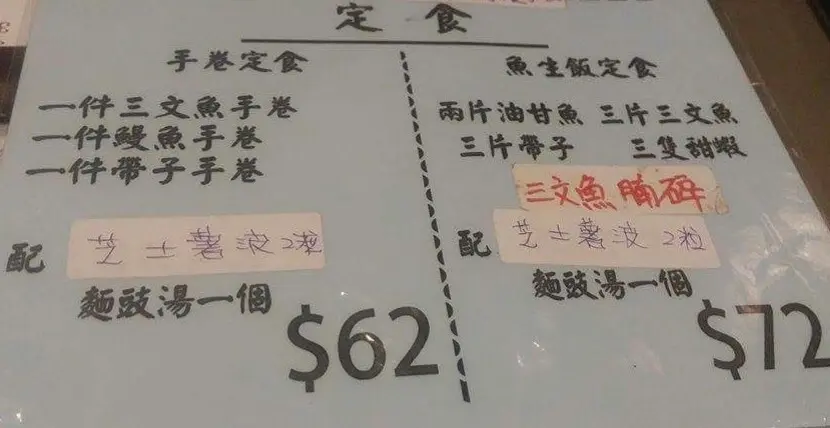 定食
手卷定食
一件三文魚手卷
一件鰻魚手卷
一件帶子手卷
配
芝士薯波2粒
麵豉湯一個
$62
魚生飯定食
兩片油甘魚 三片三文魚
三片帶子 三隻甜蝦
三文魚腩碎
配
芝士薯波2粒
麵豉湯一個
$72